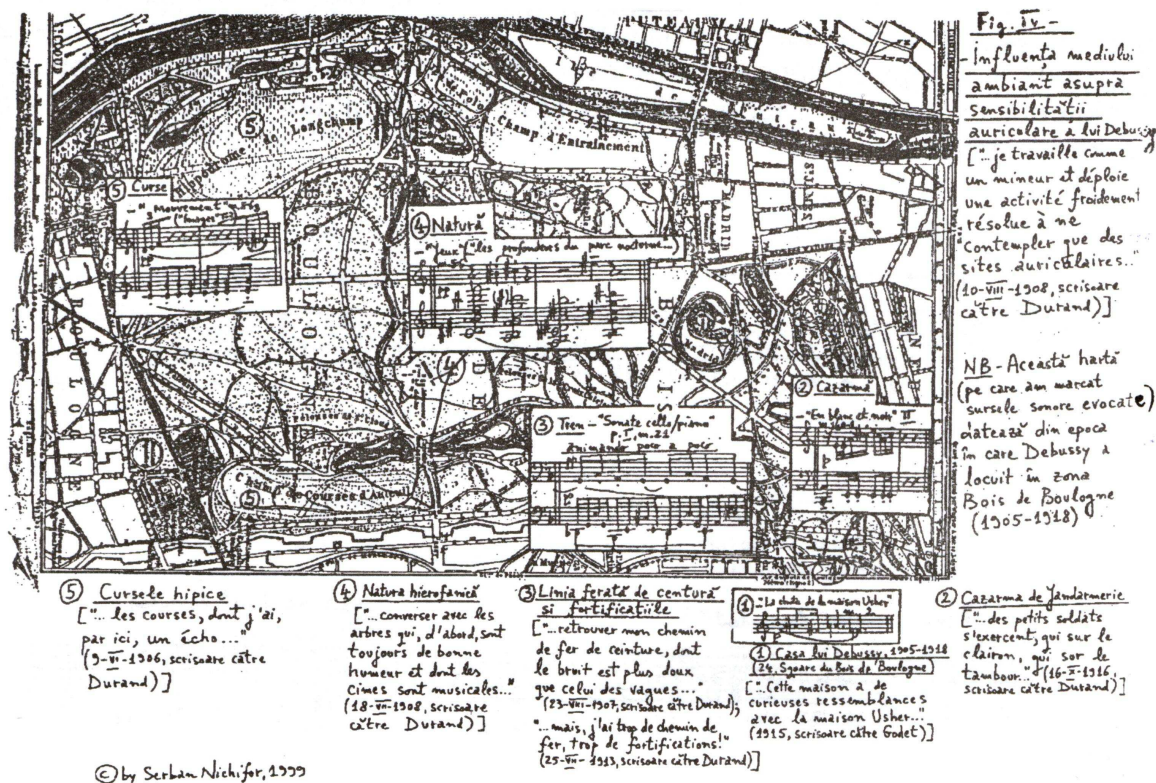 Fig. IV -
- Influența mediului
ambiant asupra
sensibilității
auriculare a lui Debussy
["...je travaille comme
un mineur et déploie
une activité froidement
résolue à ne
contempler que des
sites auriculaires..."
(10-VIII-1908, scrisoare
către Durand)]
NB - Această hartă
(pe care am marcat
sursele sonore evocate)
datează din epoca
în care Debussy a
locuit în zona
Bois de Boulogne
(1905-1918)
PUTEA
Hippodrome de Longchamp
⑤
Champ d'Entraînement
Ile de Puteaux
⑤ Curse
④ Natură
- "Jeux" ("les profondeurs du parc nocturne...")
④
Madrid
BOULOGNE
BOIS DE
② Cazarmă
- "En blanc et noir" II
③ Tren - "Sonate cello/piano"
p. I, m. 21
animando poco a poco
Champ de Courses d'Auteuil
⑤
⑤ Cursele hipice
["...les courses, dont j'ai,
par ici, un écho..."
(9-VI-1906, scrisoare către
Durand)]
④ Natura hierofanică
["...converser avec les
arbres qui, d'abord, sont
toujours de bonne
humeur et dont les
cimes sont musicales..."
(18-VII-1908, scrisoare
către Durand)]
③ Linia ferată de centură
si fortificațiile
["...retrouver mon chemin
de fer de ceinture, dont
le bruit est plus doux
que celui des vagues..."
(23-VIII-1907, scrisoare către Durand);
"...mais, j'ai trop de chemin de
fer, trop de fortifications!"
(25-VII-1913, scrisoare către Durand)]
① - "La chute de la maison Usher"
m. 2
① Casa lui Debussy, 1905-1918
(24, Square du Bois de Boulogne)
["...Cette maison a de
curieuses ressemblances
avec la maison Usher..."
(1915, scrisoare către Godet)]
② Cazarma de Jandarmerie
["...des petits soldats
s'exercent, qui sur le
clairon, qui sur le
tambour..." (16-X-1916,
scrisoare către Durand)]
© by Serban Nichifor, 1999